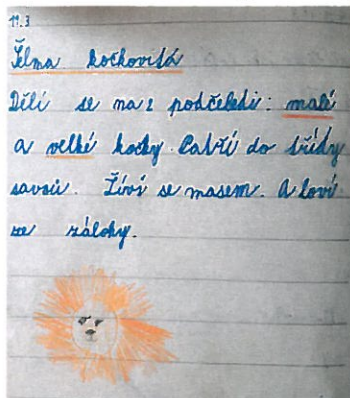 11.3
Šelma kočkovitá
Dělí se na 2 podčeledi: malé
a velké kočky. Patří do třídy
savců. Živí se masem. A loví
ze zálohy.